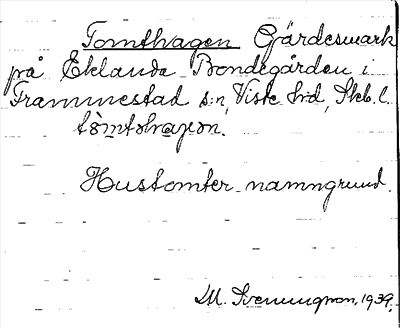 Tomthagen Gärdesmark
på Eklanda Bondegården i
Trammestad s:n, Viste hd, Skb. l.
tòmtshagən.
Hustomter namngrund.
M. Svenungson, 1939.